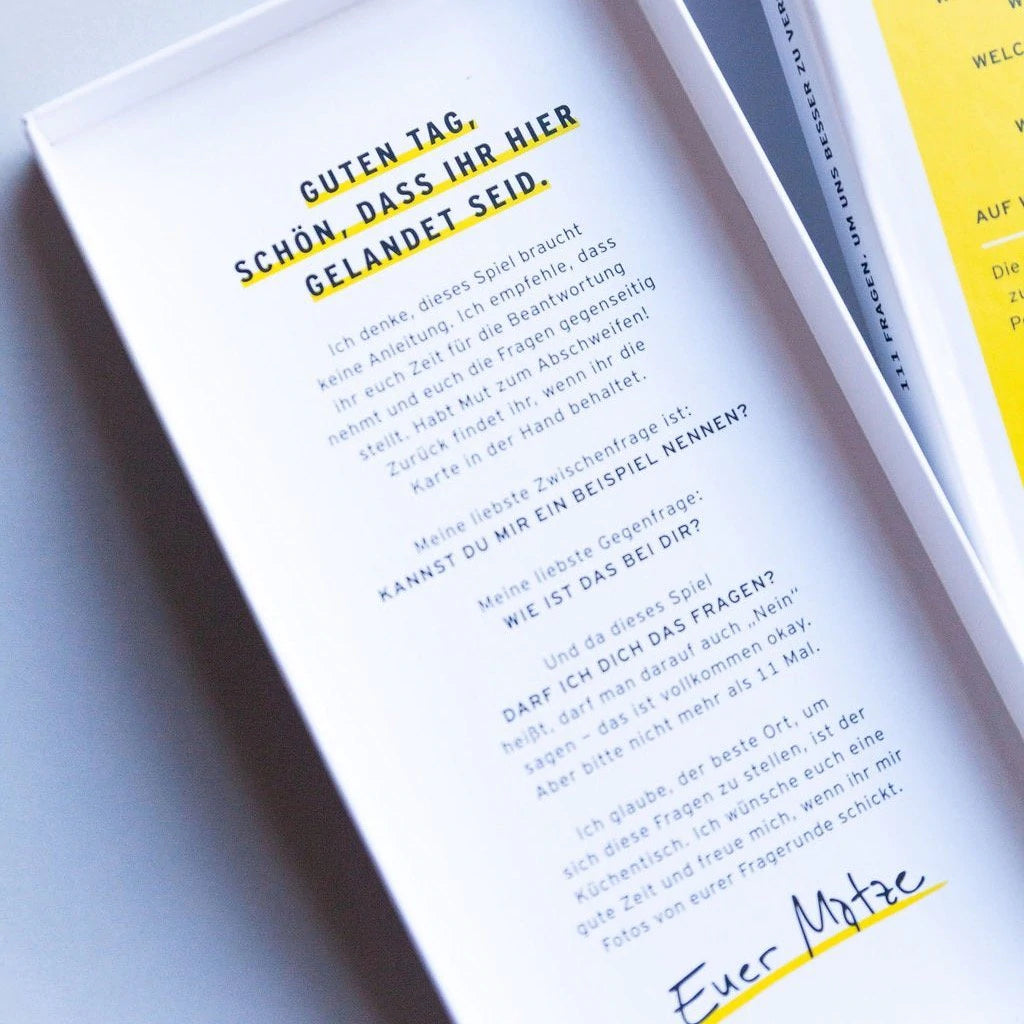 GUTEN TAG,
SCHÖN, DASS IHR HIER
GELANDET SEID.
Ich denke, dieses Spiel braucht
keine Anleitung. Ich empfehle, dass
ihr euch Zeit für die Beantwortung
nehmt und euch die Fragen gegenseitig
stellt. Habt Mut zum Abschweifen!
Zurück findet ihr, wenn ihr die
Karte in der Hand behaltet.
Meine liebste Zwischenfrage ist:
KANNST DU MIR EIN BEISPIEL NENNEN?
Meine liebste Gegenfrage:
WIE IST DAS BEI DIR?
Und da dieses Spiel
DARF ICH DICH DAS FRAGEN?
heißt, darf man darauf auch „Nein“
sagen – das ist vollkommen okay.
Aber bitte nicht mehr als 11 Mal.
Ich glaube, der beste Ort, um
sich diese Fragen zu stellen, ist der
Küchentisch. Ich wünsche euch eine
gute Zeit und freue mich, wenn ihr mir
Fotos von eurer Fragerunde schickt.
Euer Matze
111 FRAGEN, UM UNS BESSER ZU VER
WELC
W
AUF W
Die
zu